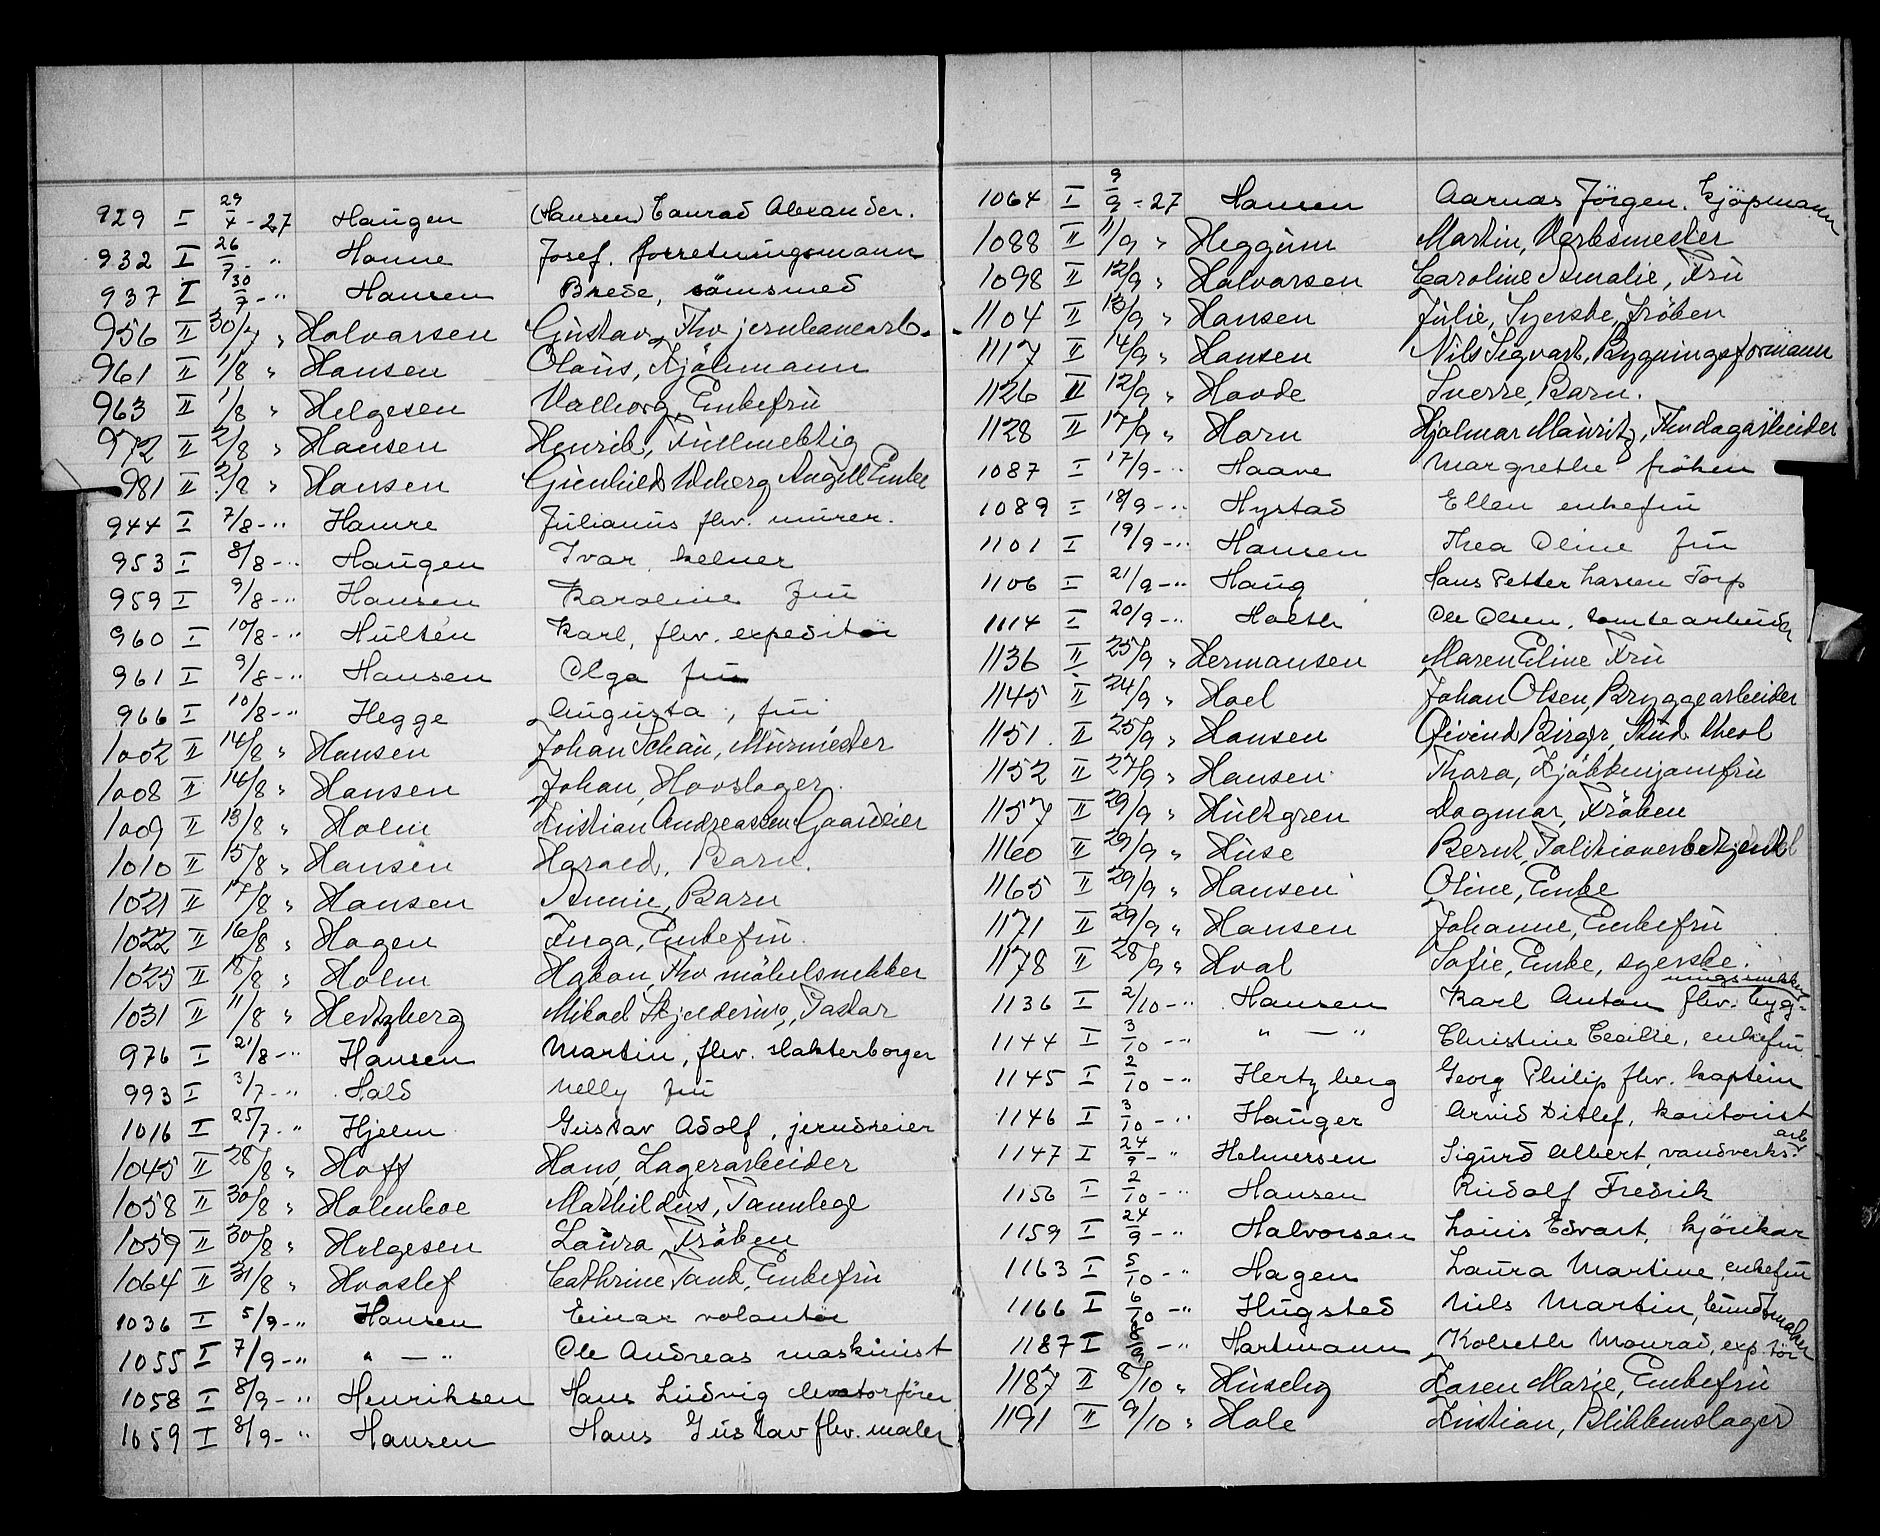 929 I 29/4-27 Haugen (Hansen) Conrad Alexander.
932 I 26/7- " Honne Josef. forretningsmann
937 I 30/7-" Hansen Brede, sömsmed
956 II 30/7 " Halvorsen Gustav, Fhv jernbanearb.
961 II 1/8 " Hansen Olaus, Kjöbmann
963 II 1/8 " Helgesen Valborg, Enkefru
972 II 2/8 " Hansen Henrik, Fullmektig
981 II 2/8 " Hansen Gunhild Angell Enke
944 I 7/8-" Hamre Julianus fhv. murer.
953 I 8/8-" Haugen Ivar, kelner
959 I 9/8-" Hansen Karoline fru
960 I 10/8-" Hultén Karl, fhv. expeditör
961 I 9/8-" Hansen Olga fru
966 I 10/8-" Hegge Augusta, fru
1002 II 14/8 " Hansen Johan Schau, Murmester
1008 II 14/8 " Hansen Johan, Hovslager.
1009 II 13/8 " Holm Kristian Andreassen Gaardeier
1010 II 15/8 " Hansen Harald, Barn.
1021 II 17/8 " Hansen Annie, Barn
1022 II 16/8 " Hagen Inga, Enkefru.
1025 II 18/8 " Holm Hakon, Fhv möbelsnekker
1031 II 11/8 " Hertzberg Mikael Skjelderup, Pastor
976 I 21/8-" Hansen Martin, fhv. slakterborger
993 I 3/7-" Hald Nelly fru
1016 I 25/7-" Hjelm Gustav Adolf, jerndreier
1045 II 28/8 " Hoff Hans, Lagerarbeider
1058 II 30/8 " Holmboe Mathildus, Tannlege
1059 II 30/8 " Helgesen Laura Fröken
1064 II 31/8 " Hvoslef Cathrine Tank, Enkefru
1036 I 5/9-" Hansen Einar volontör
1055 I 7/9-" " — " Ole Andreas maskinist
1058 I 8/9-" Henriksen Hans Ludvig elevatorförer
1059 I 8/9-" Hansen Hans Gustav fhv. maler
1064 I 9/9-27 Hansen Aarnas Jörgen. kjöpmann
1088 II 11/9 " Heggum Martin, Verksmester
1098 II 12/9 " Halvorsen Caroline Amalie, Fru
1104 II 13/9 " Hansen Julie, Syerske, Fröken
1117 II 14/9 " Hansen Nils Sigvart, Bygningsformann
1126 II 12/9 " Hovde Sverre, Barn.
1128 II 17/9 " Horn Hjalmar Mauritz, Fhv dagarbeider
1087 I 17/9-" Haave Margrethe fröken
1089 I 18/9-" Hystad Ellen enkefru
1101 I 19/9-" Hansen Thea Oline fru
1106 I 21/9-" Haug Hans Petter Larsen Torp
1114 I 20/9-" Holth Ole Olsen, tomtearbeider
1136 II 25/9 " Hermansen Maren Eline Fru
1145 II 24/9 " Hoel Johan Olsen, Bryggearbeider
1151 II 25/9 " Hansen Öivind Birger, Stud. theol
1152 II 27/9 " Hansen Thora, Kjökkenjomfru
1157 II 29/9 " Hultgren Dagmar, Fröken
1160 II 29/9 " Huse Bernt, Politioverbetjent
1165 II 29/9 " Hansen Oline, Enke
1171 II 29/9 " Hansen Johanne, Enkefru
1178 II 28/9 " Hval Sofie, Enke, syerske.
1136 I 2/10-" Hansen Karl Anton fhv. bygningssnikker
1144 I 3/10-" " — " Christine Cecilie, enkefru
1145 I 2/10-" Hertzberg Georg Philip fhv. kaptein
1146 I 3/10-" Hauger Arvid Ditlef, kontorist
1147 I 24/9-" Helmersen Sigurd Albert, vandverksarb.
1156 I 2/10-" Hansen Rudolf Fredrik
1159 I 24/9-" Halvorsen Louis Edvart, kjörekar
1163 I 5/10-" Hagen Laura Martine, enkefru
1166 I 6/10-" Hugsted Nils Martin, buntmaker
1187 I -" Hartmann Kolseth Monrad, exp.tör
1187 II 8/10 " Huseby Karen Marie, Enkefru
1191 II 9/10 " Hole Kristian, Blikkenslager